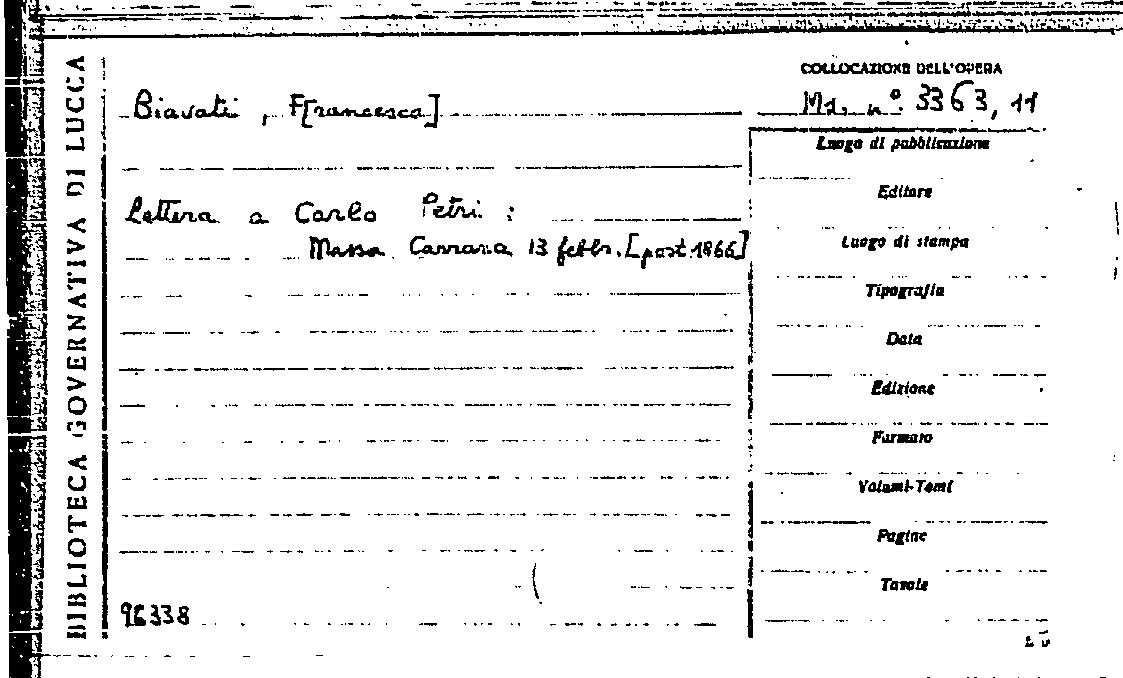 BIBLIOTECA GOVERNATIVA DI LUCCA
COLLOCAZIONE DELL'OPERA
Biavati, F[rancesca]
Ms. n°. 3363, 11
Luogo di pubblicazione
Editore
Lettera a Carlo Petri :
Massa Carrara 13 febbr. [post 1866]
Luogo di stampa
Tipografia
Data
Edizione
Formato
Volumi-Tomi
Pagine
Tavole
96338